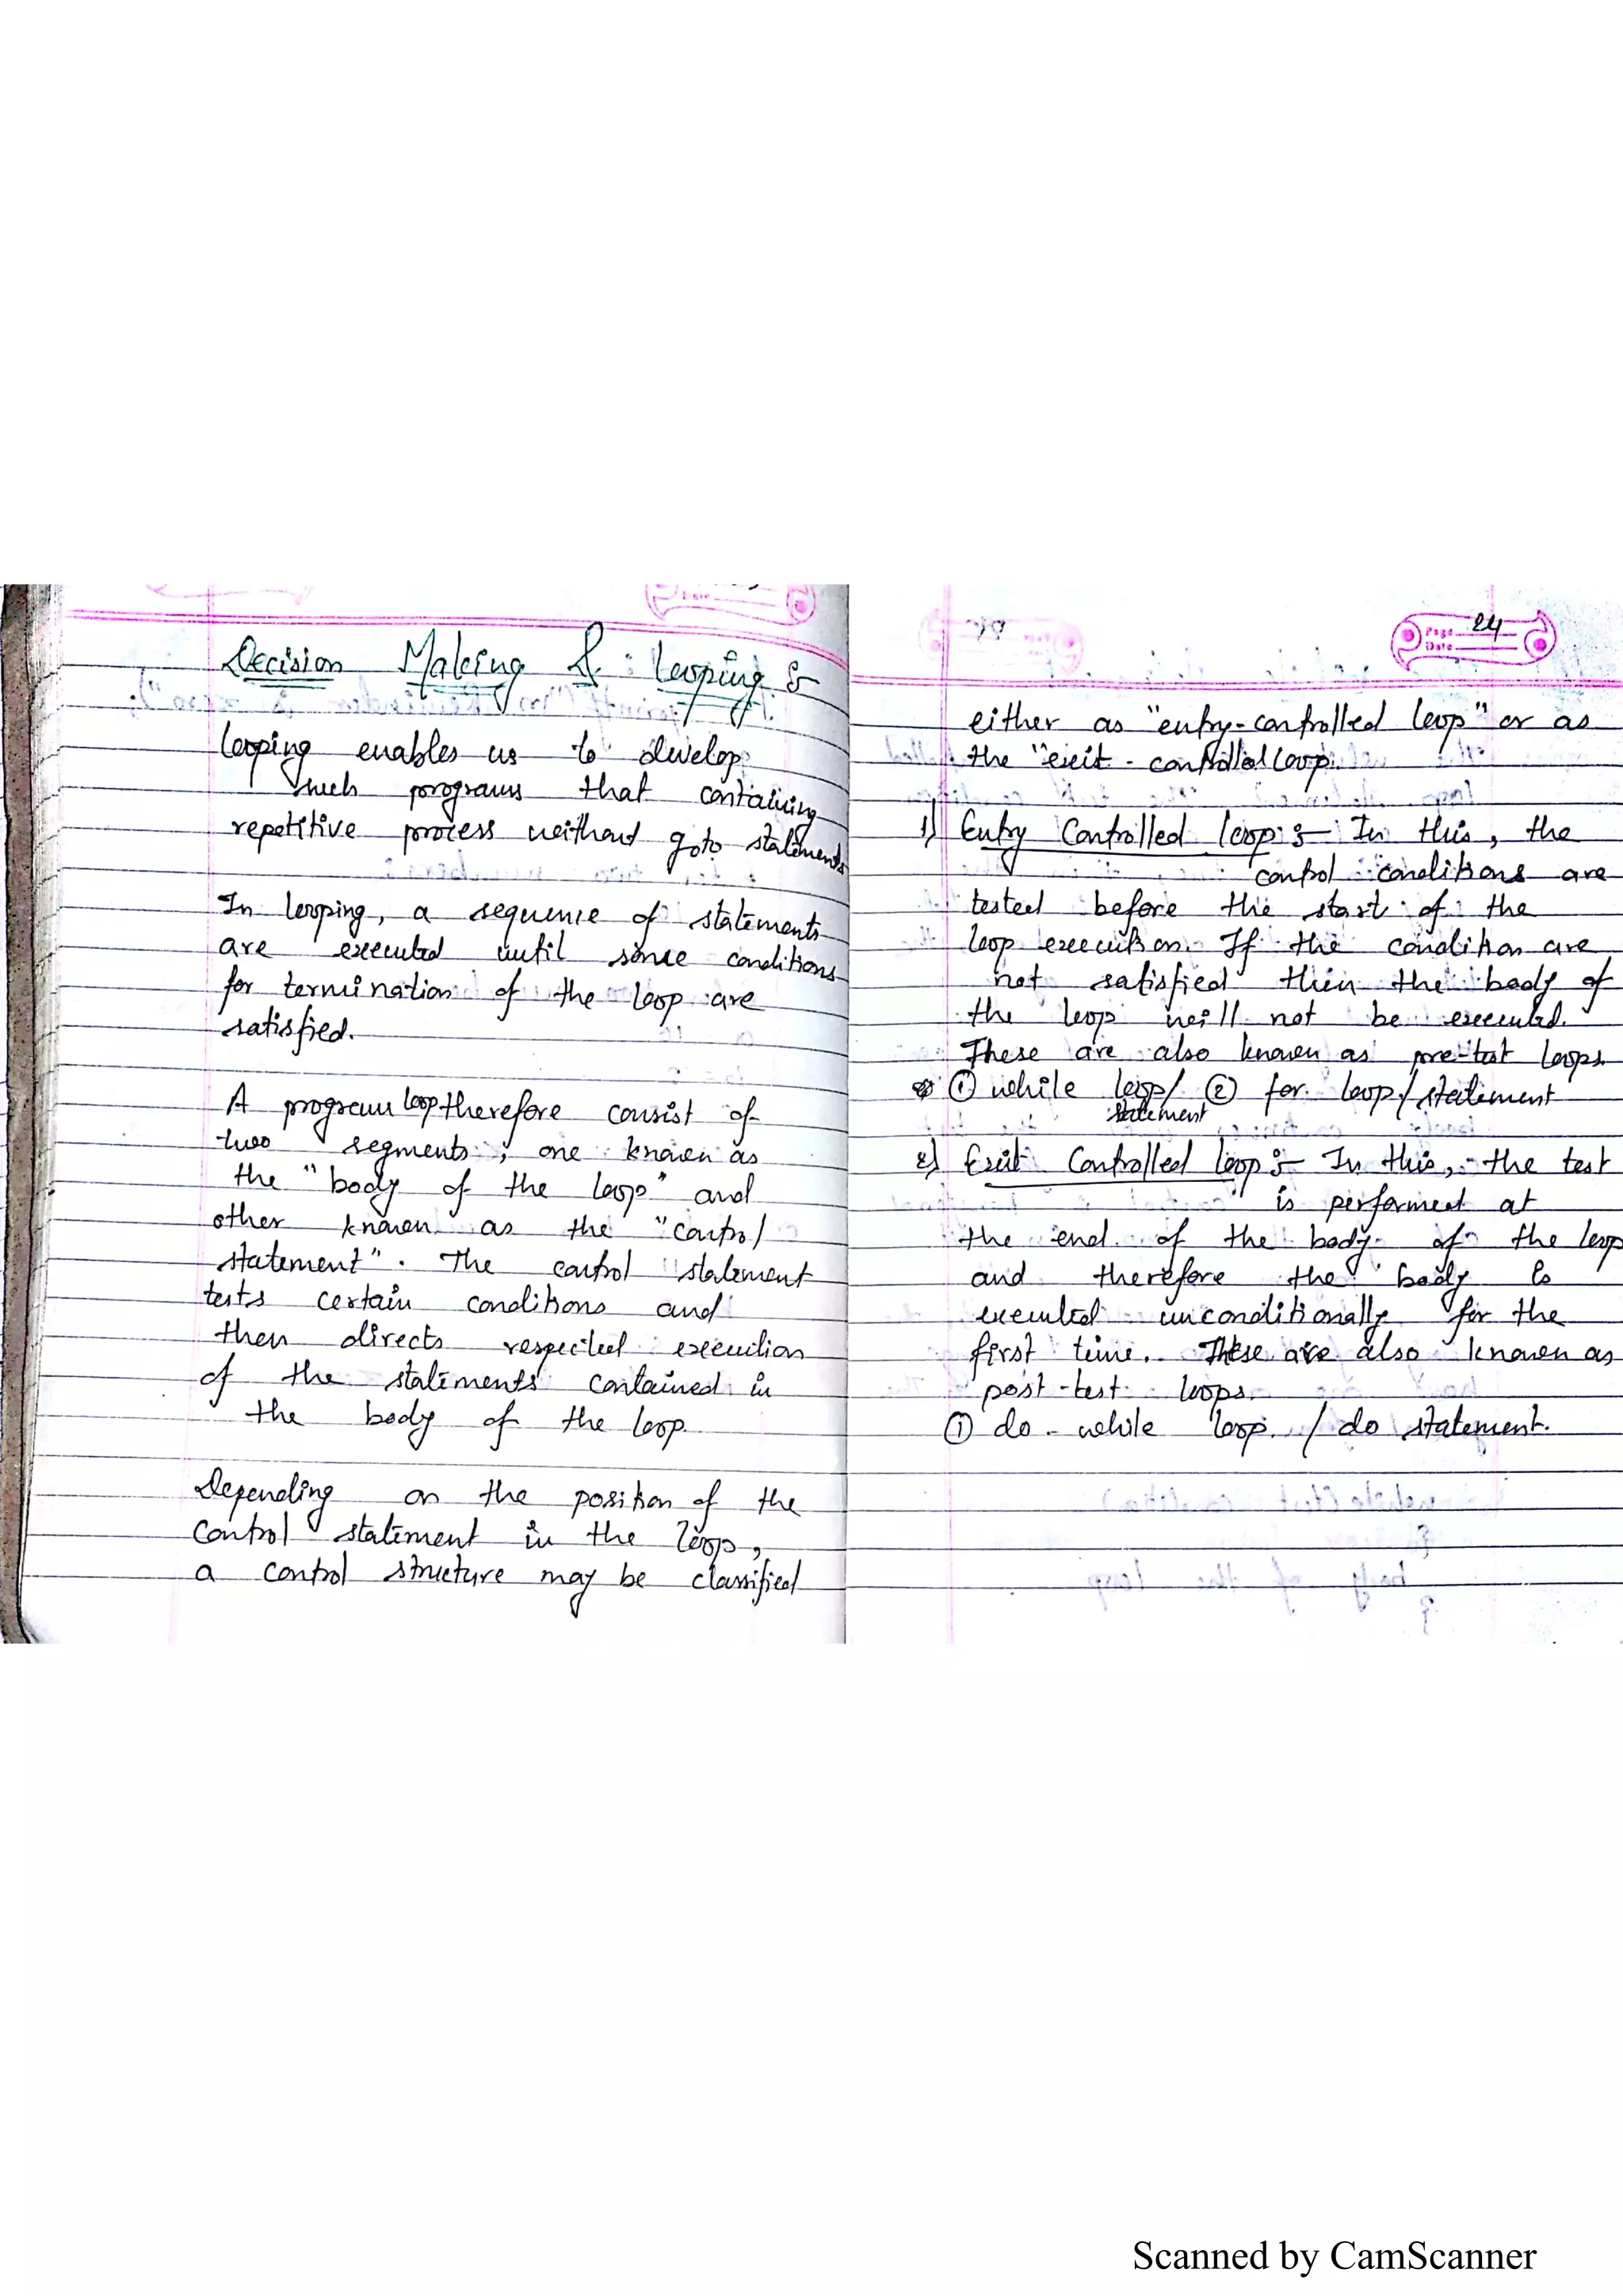 Decision Making & looping :-
looping enables us to develop
such programs that containing
repetitive process without goto statements
In looping, a sequence of statements
are executed until some conditions
for termination of the loop are
satisfied.
A program loop therefore consist of
two segments, one known as
the "body of the loop" and
other known as the "control
statement". The control statement
tests certain conditions and
then directs respected execution
of the statements contained in
the body of the loop
Depending on the position of the
control statement in the loop,
a control structure may be classified
Page 24
Date
either as "entry-controlled loop" or as
the "exit - controlled loop.
1) Entry Controlled loop :- In this, the
control conditions are
tested before the start of the
loop execution. If the condition are
not satisfied then the body of
the loop will not be executed.
These are also known as pre-test loops.
① while loop/ ② for loop/statement
statement
2) Exit Controlled loop :- In this, the test
is performed at
the end of the body of the loop
and therefore the body is
executed unconditionally for the
first time. These are also known as
post-test loops.
① do - while loop / do statement.
Scanned by CamScanner